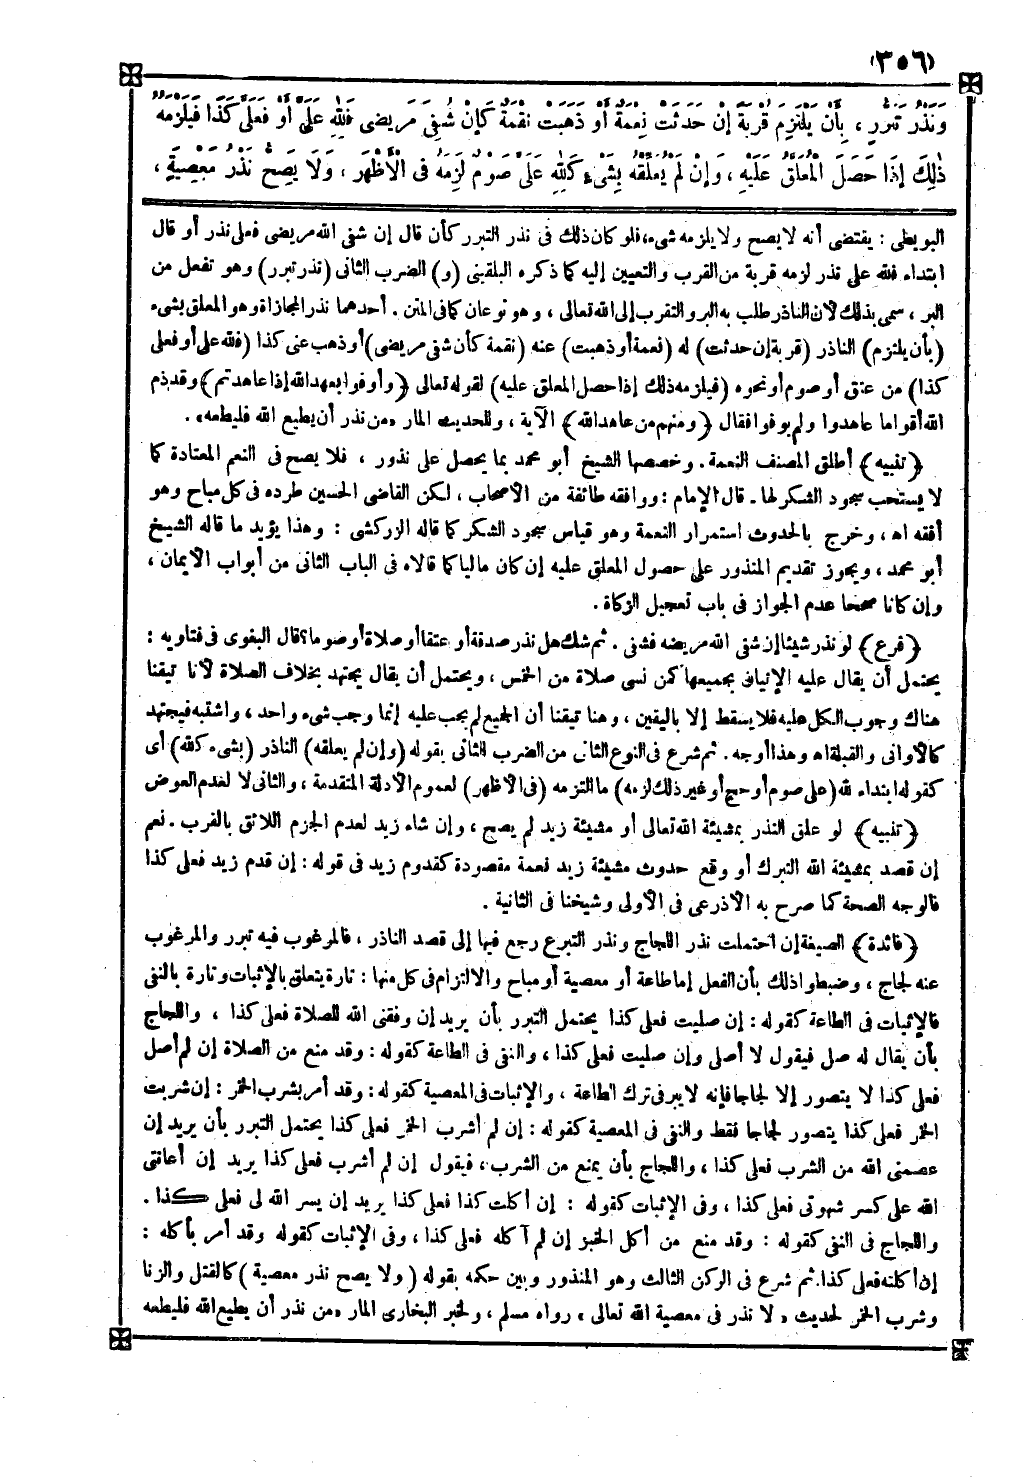 (٣٥٦)
وَنَذْرُ تَبَرُّرٍ ، بِأَنْ يَلْتَزِمَ قُرْبَةً إِنْ حَدَثَتْ نِعْمَةٌ أَوْ ذَهَبَتْ نِقْمَةٌ كَإِنْ شُفِيَ مَرِيضِي فَلِلّٰهِ عَلَيَّ أَوْ فَعَلَيَّ كَذَا فَيَلْزَمُهُ
ذٰلِكَ إِذَا حَصَلَ الْمُعَلَّقُ عَلَيْهِ ، وَإِنْ لَمْ يُعَلِّقْهُ بِشَيْءٍ كَلِلّٰهِ عَلَيَّ صَوْمٌ لَزِمَهُ فِي الْأَظْهَرِ ، وَلَا يَصِحُّ نَذْرُ مَعْصِيَةٍ ،
البويطى : يقتضى أنه لا يصح ولا يلزمه شىء ، فلو كان ذلك فى نذر التبرر كأن قال إن شفى الله مريضى فعلى نذر أو قال
ابتداء فلله على نذر لزمه قربة من القرب والتعيين إليه كما ذكره البلقينى (و) الضرب الثانى (نذر تبرر) وهو تفعل من
البر ، سمى بذلك لأن الناذر طلب به البر والتقرب إلى الله تعالى ، وهو نوعان كما فى المتن . أحدهما نذر المجازاة وهو المعلق بشىء
(بأن يلتزم) الناذر (قربة إن حدثت) له (نعمة أو ذهبت) عنه (نقمة كأن شفى مريضى) أو ذهب عنى كذا (فلله على أو فعلى
كذا) من عتق أو صوم أو نحوه (فيلزمه ذلك إذا حصل المعلق عليه) لقوله تعالى (وأوفوا بعهد الله إذا عاهدتم) وقد ذم
الله أقواما عاهدوا ولم يوفوا فقال (ومنهم من عاهد الله) الآية ، وللحديث المار «من نذر أن يطيع الله فليطعه» .
(تنبيه) أطلق المصنف النعمة . وخصصها الشيخ أبو محمد بما يحصل على نذور ، فلا يصح فى النعم المعتادة كما
لا يستحب سجود الشكر لها . قال الإمام : ووافقه طائفة من الأصحاب ، لكن القاضى الحسين طرده فى كل مباح وهو
أفقه اه ، وخرج بالحدوث استمرار النعمة وهو قياس سجود الشكر كما قاله الزركشى : وهذا يؤيد ما قاله الشيخ
أبو محمد ، ويجوز تقديم المنذور على حصول المعلق عليه إن كان ماليا كما قالاه فى الباب الثانى من أبواب الأيمان ،
وإن كانا صححا عدم الجواز فى باب تعجيل الزكاة .
(فرع) لو نذر شيئا إن شفى الله مريضه فشفى . ثم شك هل نذر صدقة أو عتقا أو صلاة أو صوما ؟ قال البغوى فى فتاويه :
يحتمل أن يقال عليه الإتيان بجميعها كمن نسى صلاة من الخمس ، ويحتمل أن يقال يجتهد بخلاف الصلاة لأنا تيقنا
هناك وجوب الكل عليه فلا يسقط إلا باليقين ، وهنا تيقنا أن الجميع لم يجب عليه إنما وجب شىء واحد ، واشتبه فيجتهد
كالأوانى والقبلة اه وهذا أوجه . ثم شرع فى النوع الثانى من الضرب الثانى بقوله (وإن لم يعلقه) الناذر (بشىء كلله) أى
كقوله ابتداء لله (على صوم أو حج أو غير ذلك لزمه) ما التزمه (فى الأظهر) لعموم الأدلة المتقدمة ، والثانى لا لعدم العوض
(تنبيه) لو علق النذر بمشيئة الله تعالى أو مشيئة زيد لم يصح ، وإن شاء زيد لعدم الجزم اللائق بالقرب . نعم
إن قصد بمشيئة الله التبرك أو وقع حدوث مشيئة زيد نعمة مقصودة كقدوم زيد فى قوله : إن قدم زيد فعلى كذا
فالوجه الصحة كما صرح به الأذرعى فى الأولى وشيخنا فى الثانية .
(فائدة) الصيغة إن احتملت نذر اللجاج ونذر التبرع رجع فيها إلى قصد الناذر ، فالمرغوب فيه تبرر والمرغوب
عنه لجاج ، وضبطوا ذلك بأن الفعل إما طاعة أو معصية أو مباح والالتزام فى كل منها : تارة يتعلق بالإثبات وتارة بالنفى
فالإثبات فى الطاعة كقوله : إن صليت فعلى كذا يحتمل التبرر بأن يريد إن وفقنى الله للصلاة فعلى كذا ، واللجاج
بأن يقال له صل فيقول لا أصلى وإن صليت فعلى كذا ، والنفى فى الطاعة كقوله : وقد منع من الصلاة إن لم أصل
فعلى كذا لا يتصور إلا لجاجا فإنه لا يبر فى ترك الطاعة ، والإثبات فى المعصية كقوله : وقد أمر بشرب الخمر : إن شربت
الخمر فعلى كذا يتصور لجاجا فقط والنفى فى المعصية كقوله : إن لم أشرب الخمر فعلى كذا يحتمل التبرر بأن يريد إن
عصمنى الله من الشرب فعلى كذا ، واللجاج بأن يمنع من الشرب ، فيقول إن لم أشرب فعلى كذا يريد إن أعانتى
الله على كسر شهوتى فعلى كذا ، وفى الإثبات كقوله : إن أكلت كذا فعلى كذا يريد إن يسر الله لى فعلى كذا .
واللجاج فى النفى كقوله : وقد منع من أكل الخبز إن لم آكله فعلى كذا ، وفى الإثبات كقوله وقد أمر بأكله :
إن أكلته فعلى كذا. ثم شرع فى الركن الثالث وهو المنذور وبين حكمه بقوله (ولا يصح نذر معصية) كالقتل والزنا
وشرب الخمر لحديث «لا نذر فى معصية الله تعالى» رواه مسلم ، ولخبر البخارى المار «من نذر أن يطيع الله فليطعه